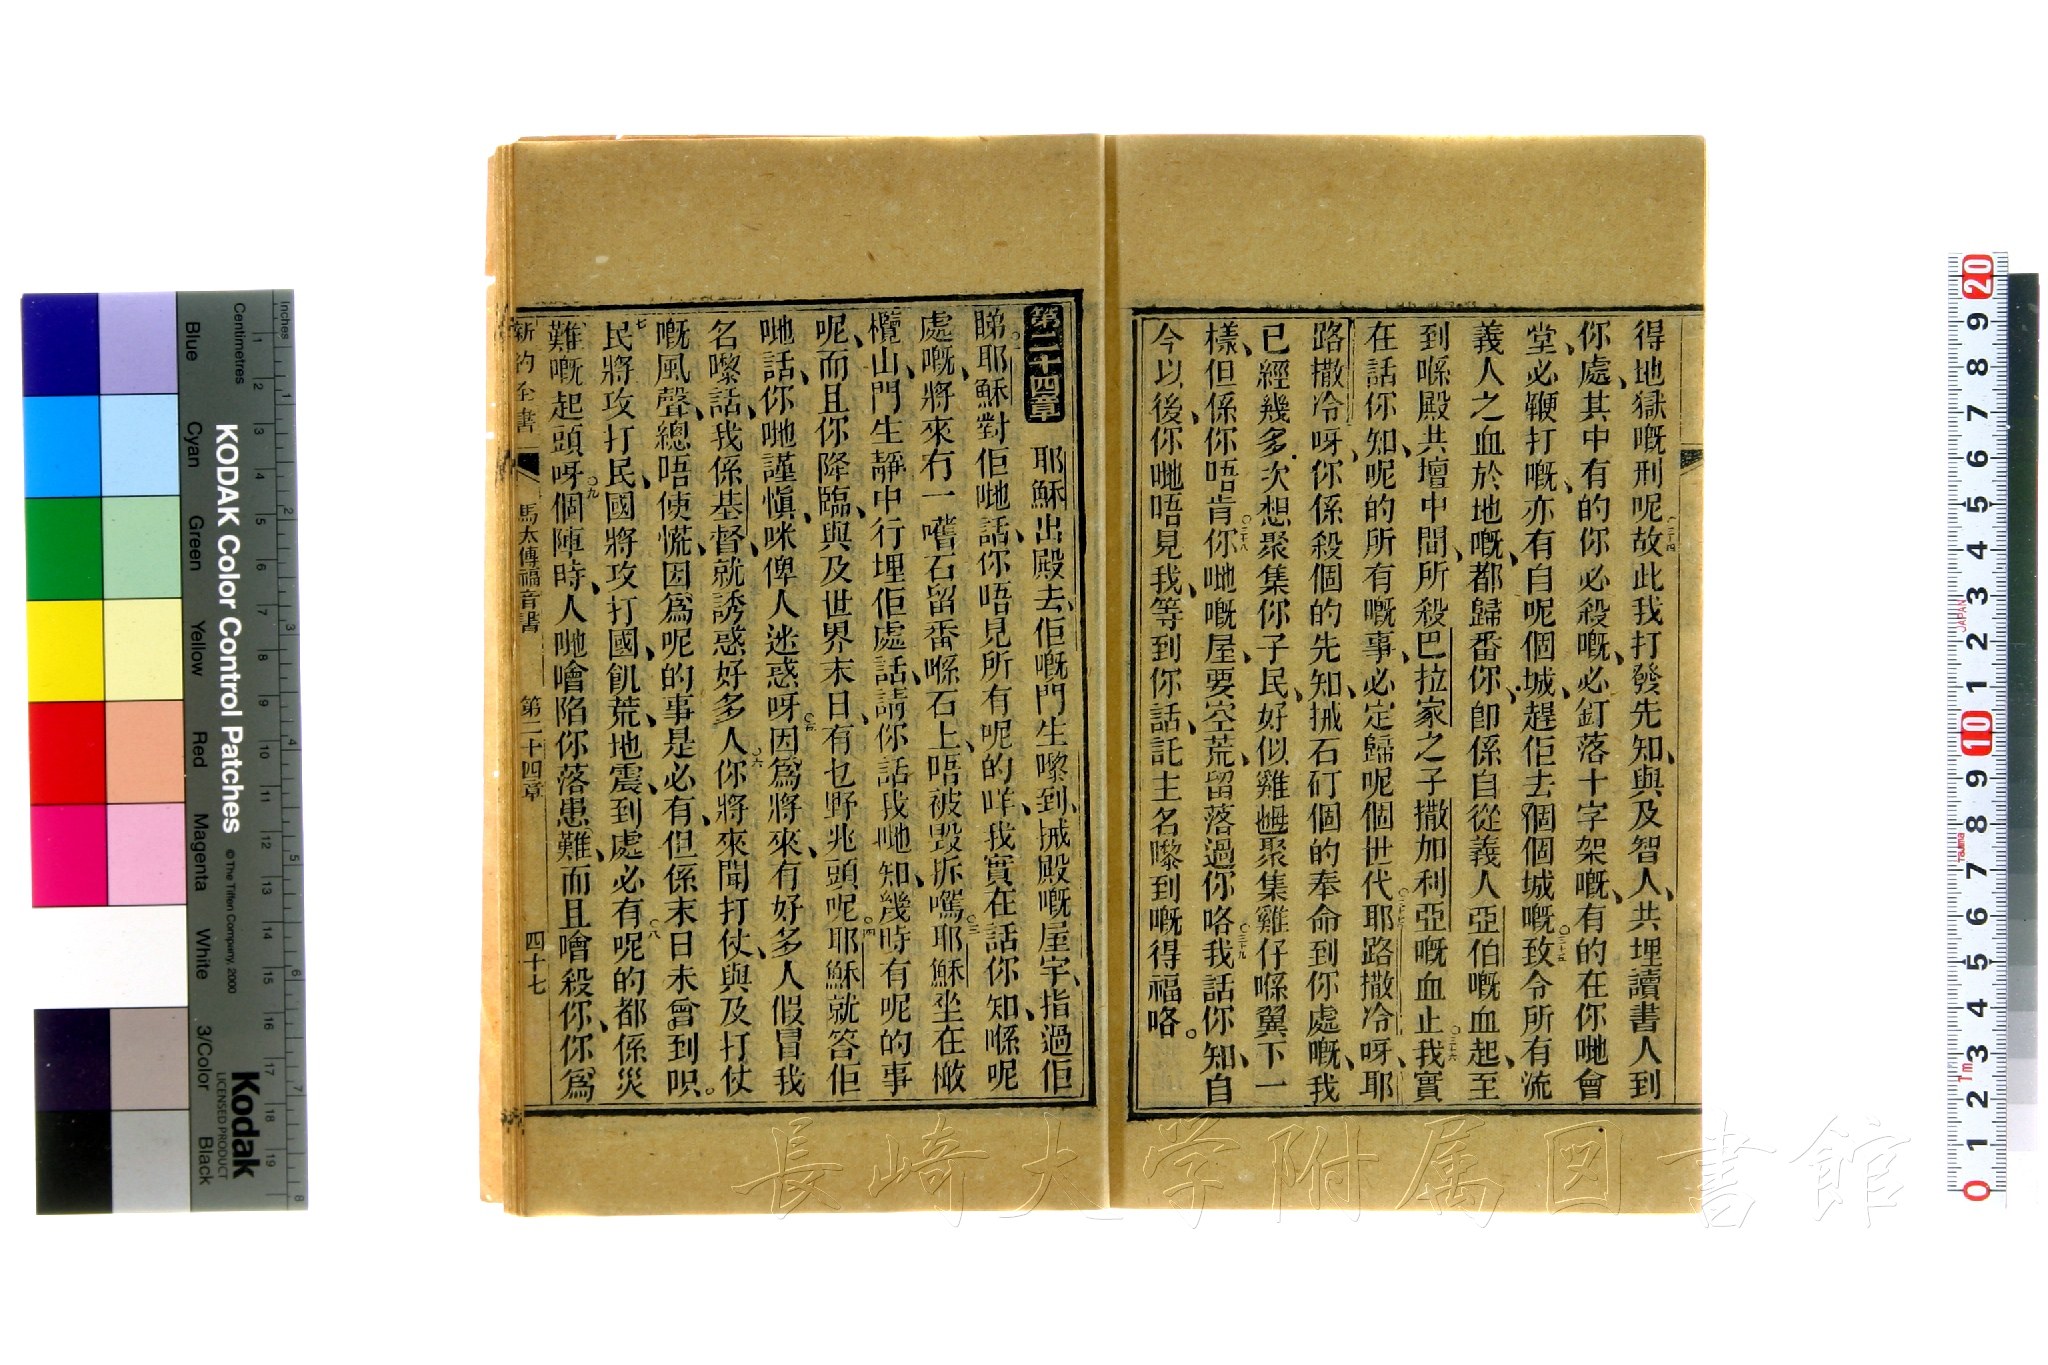 得地獄嘅刑呢故此我打發先知、與及智人、共埋讀書人到
你處、其中有的你必殺嘅、必釘落十字架嘅、有的在你哋會
堂、必鞭打嘅、亦有自呢個城、趕佢去個個城嘅致令所有流
義人之血於地嘅、都歸番你、卽係自從義人亞伯嘅血起、至
到喺殿共壇中間、所殺巴拉家之子撒加利亞嘅血止我實
在話你知、呢的所有嘅事、必定歸呢個世代耶路撒冷呀、耶
路撒冷呀、你係殺個的先知、㧡石矴個的奉命到你處嘅、我
已經幾多次想聚集你子民、好似雞乸聚集雞仔喺翼下一
樣、但係你唔肯你哋嘅屋、要空荒、留落過你咯我話你知、自
今以後、你哋唔見我、等到你話、託主名嚟到嘅得福咯。
第二十四章 耶穌出殿去、佢嘅門生嚟到、㧡殿嘅屋宇、指過佢
睇耶穌對佢哋話、你唔見所有呢的咩、我實在話你知、喺呢
處嘅、將來冇一嚿石留番喺石上、唔被毀拆嘅耶穌坐在橄
欖山、門生靜中行埋佢處、話、請你話我哋知、幾時有呢的事
呢、而且你降臨、與及世界末日、有乜野兆頭呢耶穌就答佢
哋話、你哋謹愼、咪俾人迷惑呀因爲將來、有好多人假冒我
名嚟話、我係基督、就誘惑好多人你將來聞打仗、與及打仗
嘅風聲、總唔使慌、因爲呢的事是必有、但係末日未曾到呮。
民將攻打民、國將攻打國、飢荒、地震、到處必有呢的都係災
難嘅起頭呀個陣時、人哋噲陷你落患難、而且噲殺你、你爲
新約全書
馬太傳福音書
第二十四章
四十七
長崎大学附属図書館
Inches
Centimetres
KODAK Color Control Patches
© The Tiffen Company, 2000
Kodak
LICENSED PRODUCT
Blue
Cyan
Green
Yellow
Red
Magenta
White
3/Color
Black
JAPAN
Tajima